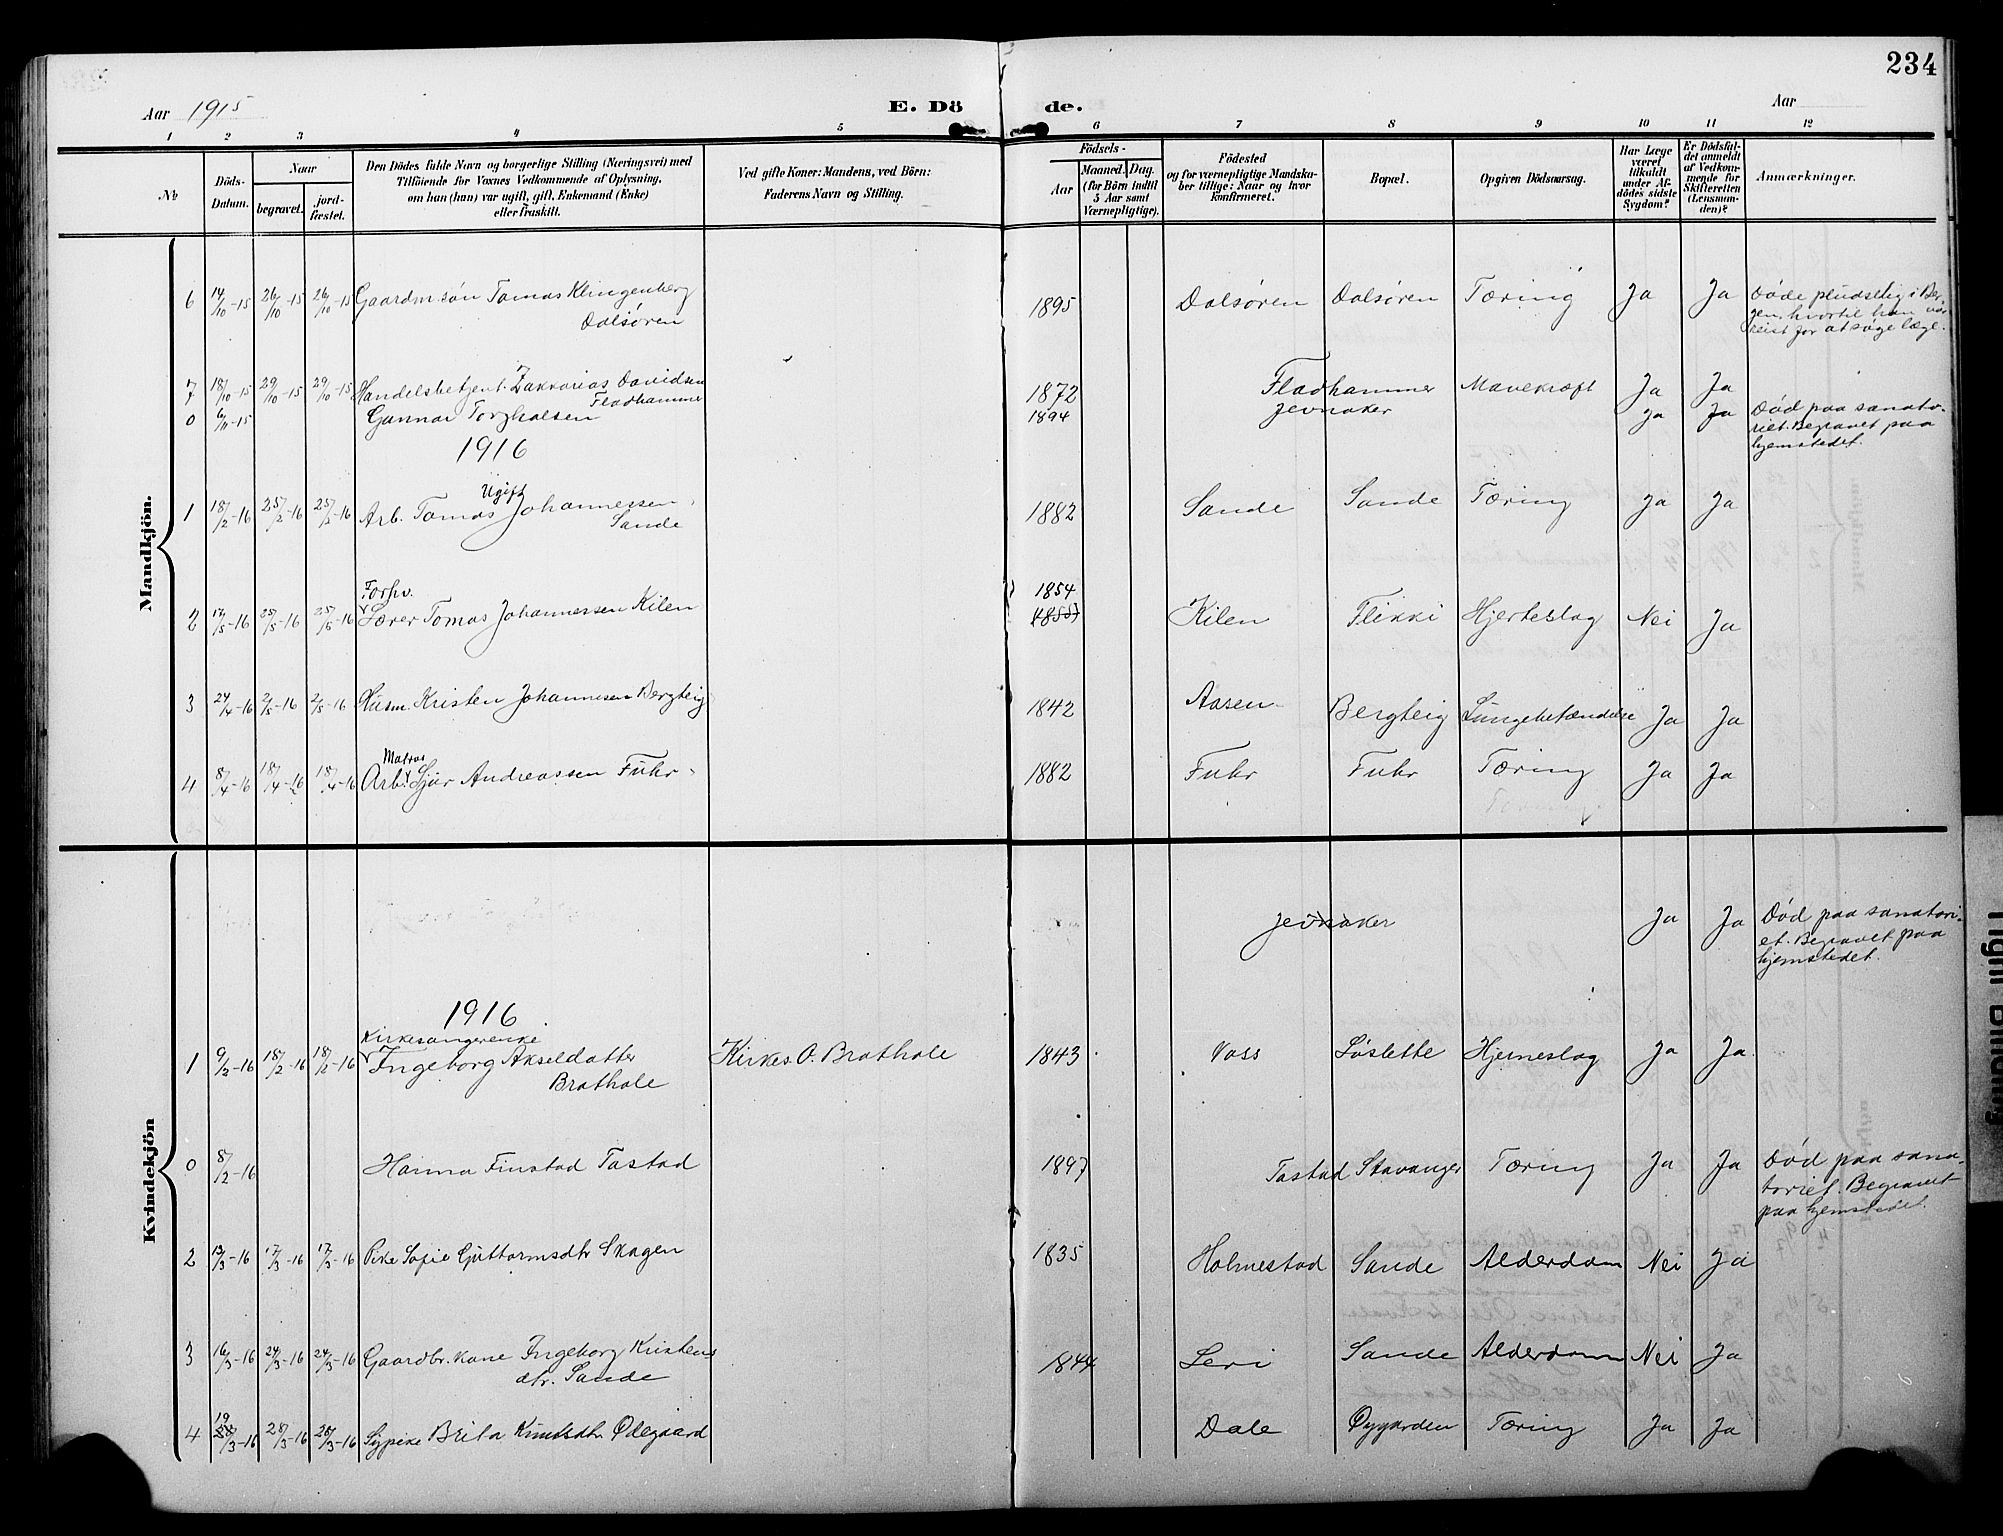 234
Aar 1915
E. Döde.
Aar
1 2 3 4 5 6 7 8 9 10 11 12
№
Döds-Datum.
Naar
begravet.
jord-fæstet.
Den Dödes fulde Navn og borgerlige Stilling (Næringsvei) med
Tilföiende for Voxnes Vedkommende af Oplysning,
om han (hun) var ugift, gift, Enkemand (Enke)
eller fraskilt.
Ved gifte Koner: Mandens, ved Börn:
Faderens Navn og Stilling.
Födsels-
Aar
Maaned. Dag.
(for Börn indtil
5 Aar samt
Værnepligtige).
Födested
og for værnepligtige Mandska-
ber tillige: Naar og hvor
konfirmeret.
Bopæl.
Opgiven Dödsaarsag.
Har Læge
været
tilkaldt
under Af-
dödes sidste
Sygdom?
Er Dödsfal-
det anmeldt
af Vedkom-
mende for
Skifteretten
(Lensman-
den)?
Anmærkninger.
Mandkjön.
6 14/10-15 26/10-15 26/10-15 Gaardm.søn Tomas Klingenberg 1895 Dalsøren Dalsøren Tæring Ja Ja Døde pludselig i Ber-
Dalsøren gen, hvortil han var
reist for at søge læge.
7 18/10-15 29/10-15 29/10-15 Handelsbetjent Zakkarias Davidsen 1872 Fladhammer Mavekræft Ja Ja
Fladhammer
0 6/11-15 Gunnar Torghalsen 1894 Jevnaker Ja Ja Død paa sanato-
riet. Begravet paa
hjemstedet.
1916
Ugift
1 18/2-16 25/2-16 25/2-16 Arb. Tomas Johannessen 1882 Sande Sande Tæring Ja Ja
Sande
Forhv. 1854
2 17/5-16 25/5-16 25/5-16 Lærer Tomas Johannessen Kilen Kilen Flikki Hjerteslag Nei Ja
3 24/4-16 2/5-16 2/5-16 Husm. Kristen Johannesen Bergteig 1842 Aasen Bergteig Lungebetændelse Ja Ja
Matros
4 8/4-16 18/4-16 18/4-16 Arb. Sjur Andreassen Fuhr 1882 Fuhr Fuhr Tæring Ja Ja
Kvindekjön
Jevnaker Ja Ja Død paa sanatori-
et. Begravet paa
hjemstedet.
1916
Kirkesangerenke
1 9/2-16 18/2-16 18/2-16 Ingeborg Akseldatter Kirkes. O. Brathole 1843 Voss Løslette Hjerneslag Ja Ja
Brathole
0 8/2-16 Hanna Finstad Tastad 1897 Tastad Stavanger Tæring Ja Ja Død paa sana-
toriet. Begravet
paa hjemstedet.
2 13/3-16 17/3-16 17/3-16 Pike Sofie Guttormsdtr Skagen 1835 Holmestad Sande Alderdom Nei Ja
3 16/3-16 24/3-16 24/3-16 Gaardbr. kone Ingeborg Kristens- 1844 Leri Sande Alderdom Nei Ja
dtr. Sande
4 19/3-16 28/3-16 28/3-16 Sypike Brita Knutsdtr Ødegaard Dale Øygarden Tæring Ja Ja